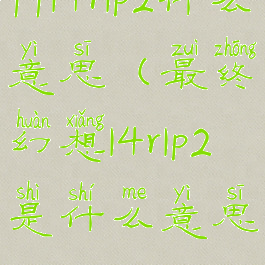 14r1p2什么
yì sī zuì zhōng
意思(最终
huàn xiǎng
幻想14r1p2
shì shí me yì sī
是什么意思